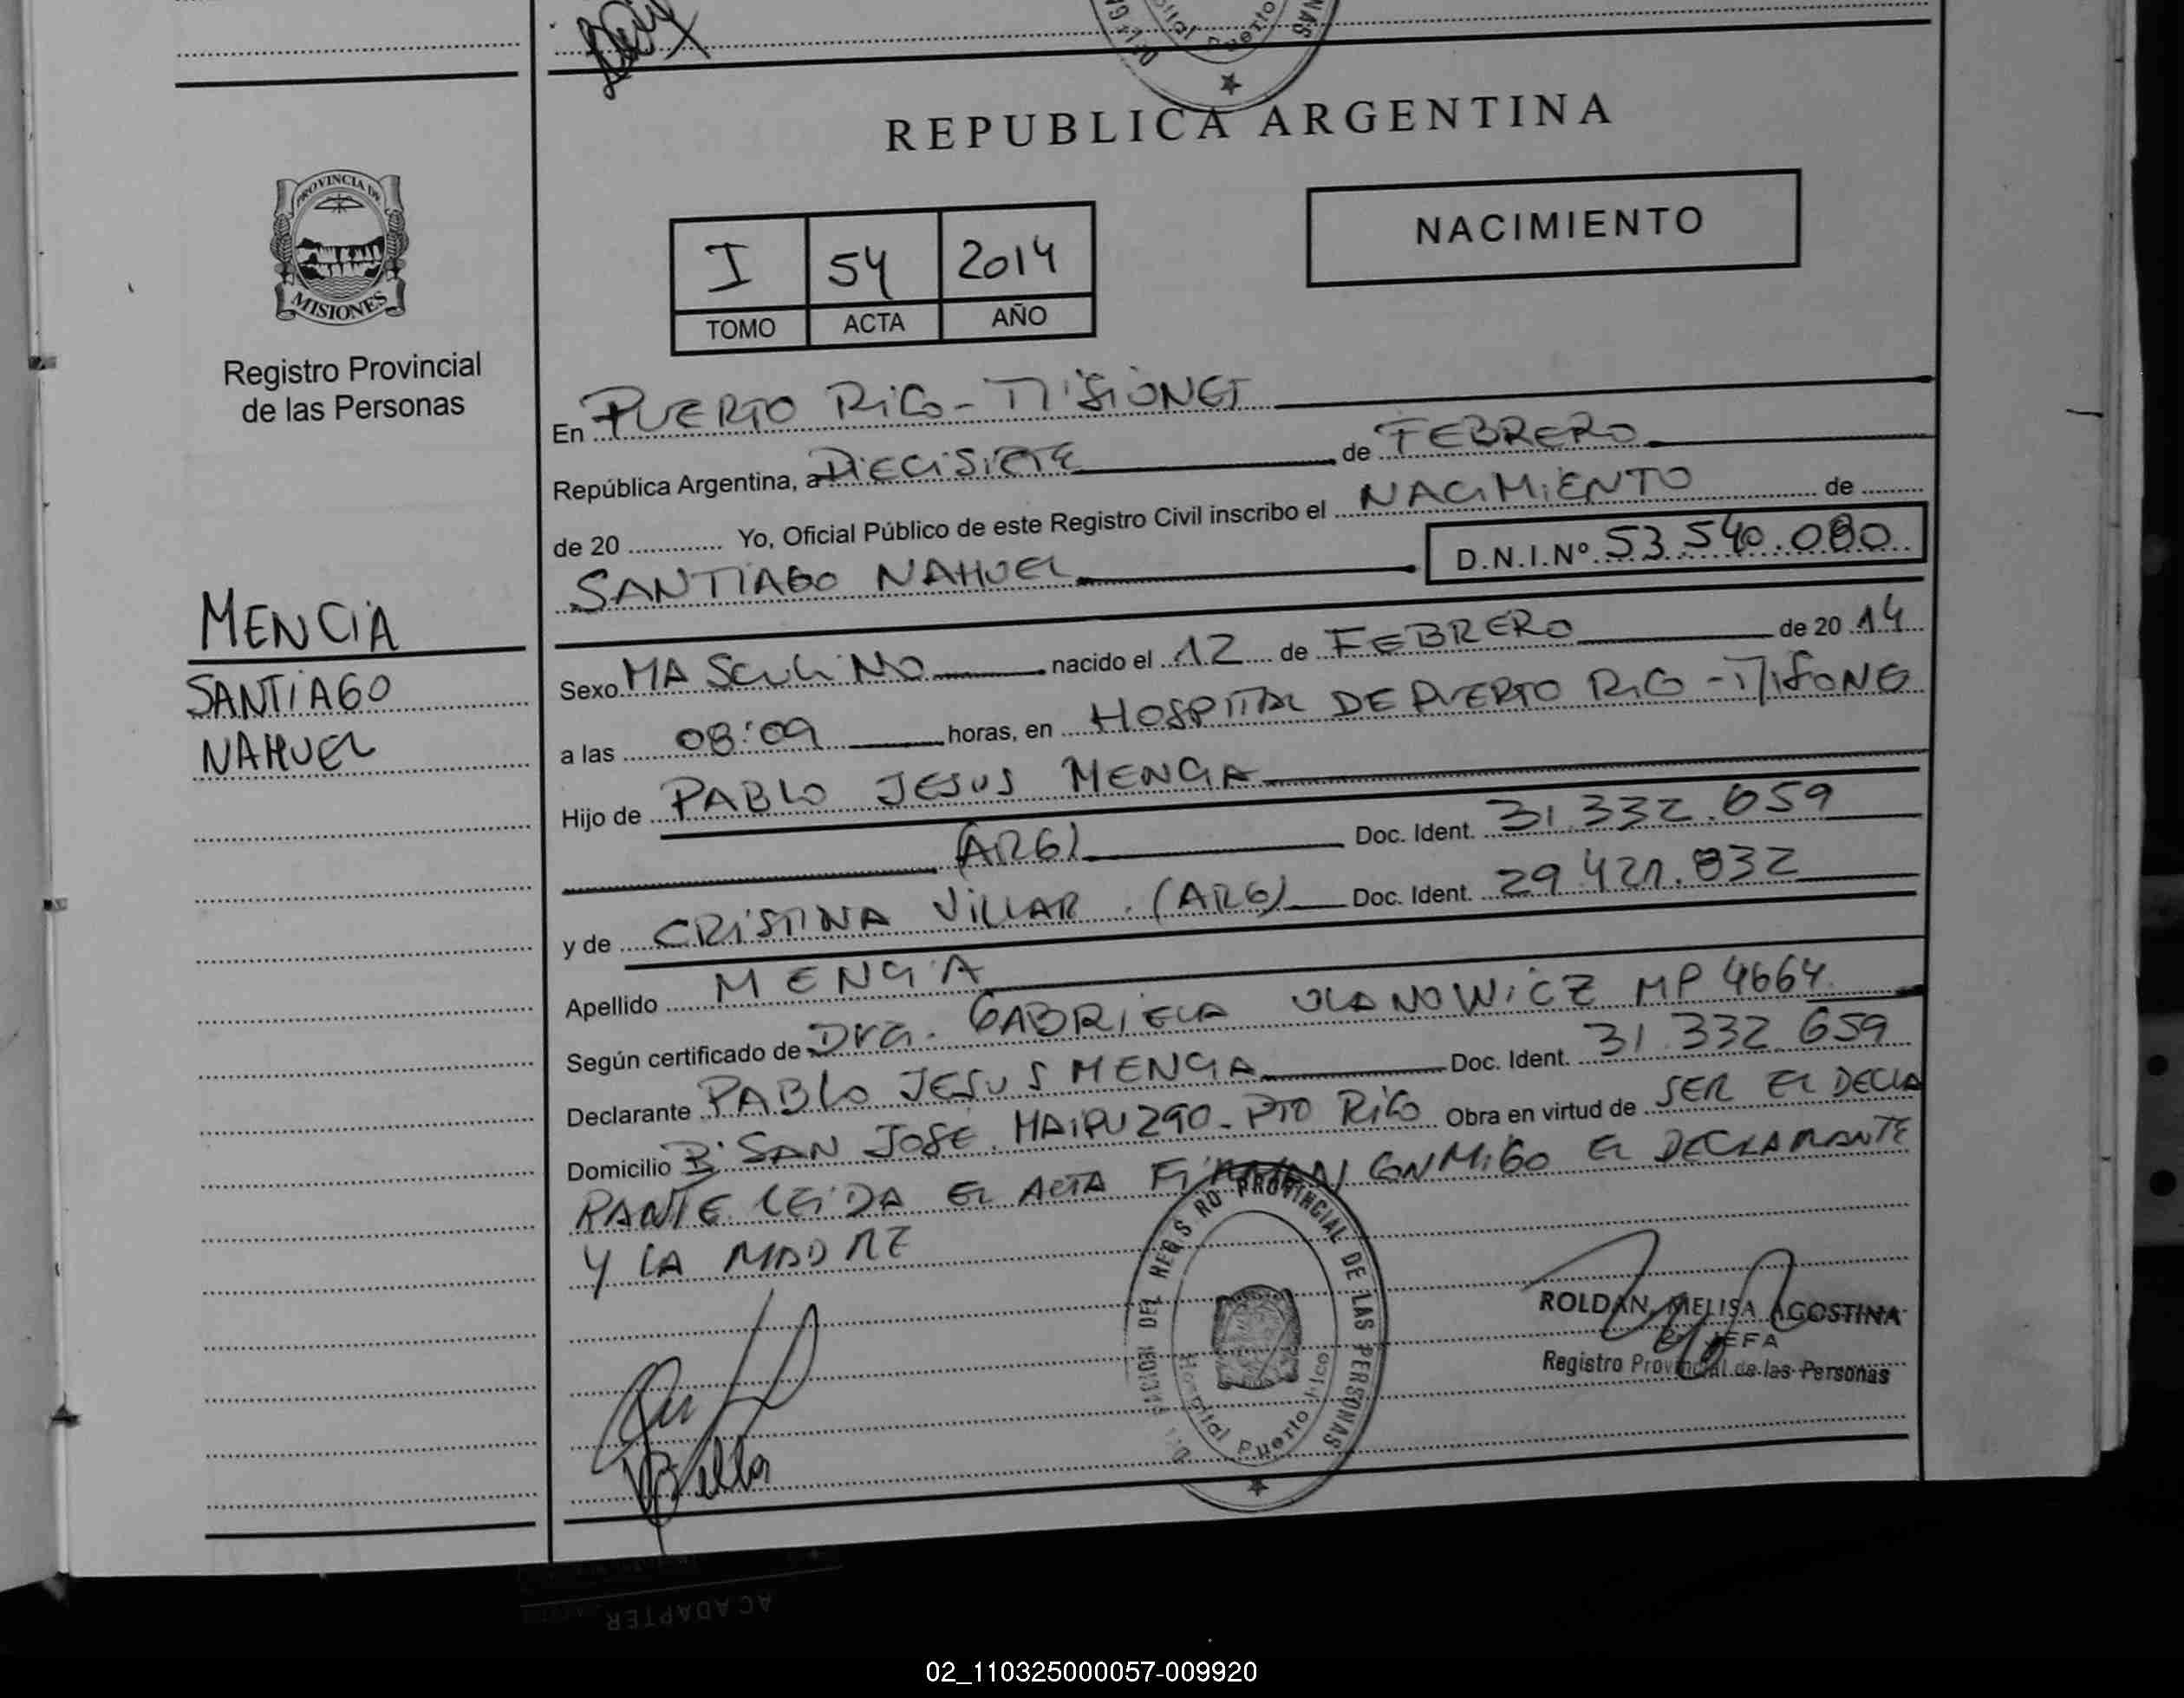 REPUBLICA ARGENTINA
PROVINCIA DE
MISIONES
Registro Provincial
de las Personas
NACIMIENTO
I 54 2014
TOMO ACTA AÑO
En PUERTO RICO - MISIONES
República Argentina, a DIECISIETE de FEBRERO
de 20 Yo, Oficial Público de este Registro Civil inscribo el NACIMIENTO de
SANTIAGO NAHUEL D.N.I.Nº 53.540.080
MENCIA
SANTIAGO
NAHUEL
Sexo MASCULINO nacido el 12 de FEBRERO de 20 14
a las 08:09 horas, en HOSPITAL DE PUERTO RICO - MISIONES
Hijo de PABLO JESUS MENCIA
(ARG) Doc. Ident. 31.332.659
y de CRISTINA VILLAR (ARG) Doc. Ident. 29.421.832
Apellido MENCIA
Según certificado de Dra. GABRIELA ULANOWICZ MP 4664
Declarante PABLO JESUS MENCIA Doc. Ident. 31.332.659
Domicilio Bº SAN JOSE. MAIPU 290 - PTO RICO Obra en virtud de SER EL DECLA
RANTE LEIDA EL ACTA FIRMAN CONMIGO EL DECLARANTE
Y LA MADRE
DEL REGISTRO PROVINCIAL DE LAS PERSONAS
Hospital Puerto Rico
ROLDAN, MELISA AGOSTINA
JEFA
Registro Provincial de las Personas
ACADAPTER
02_110325000057-009920